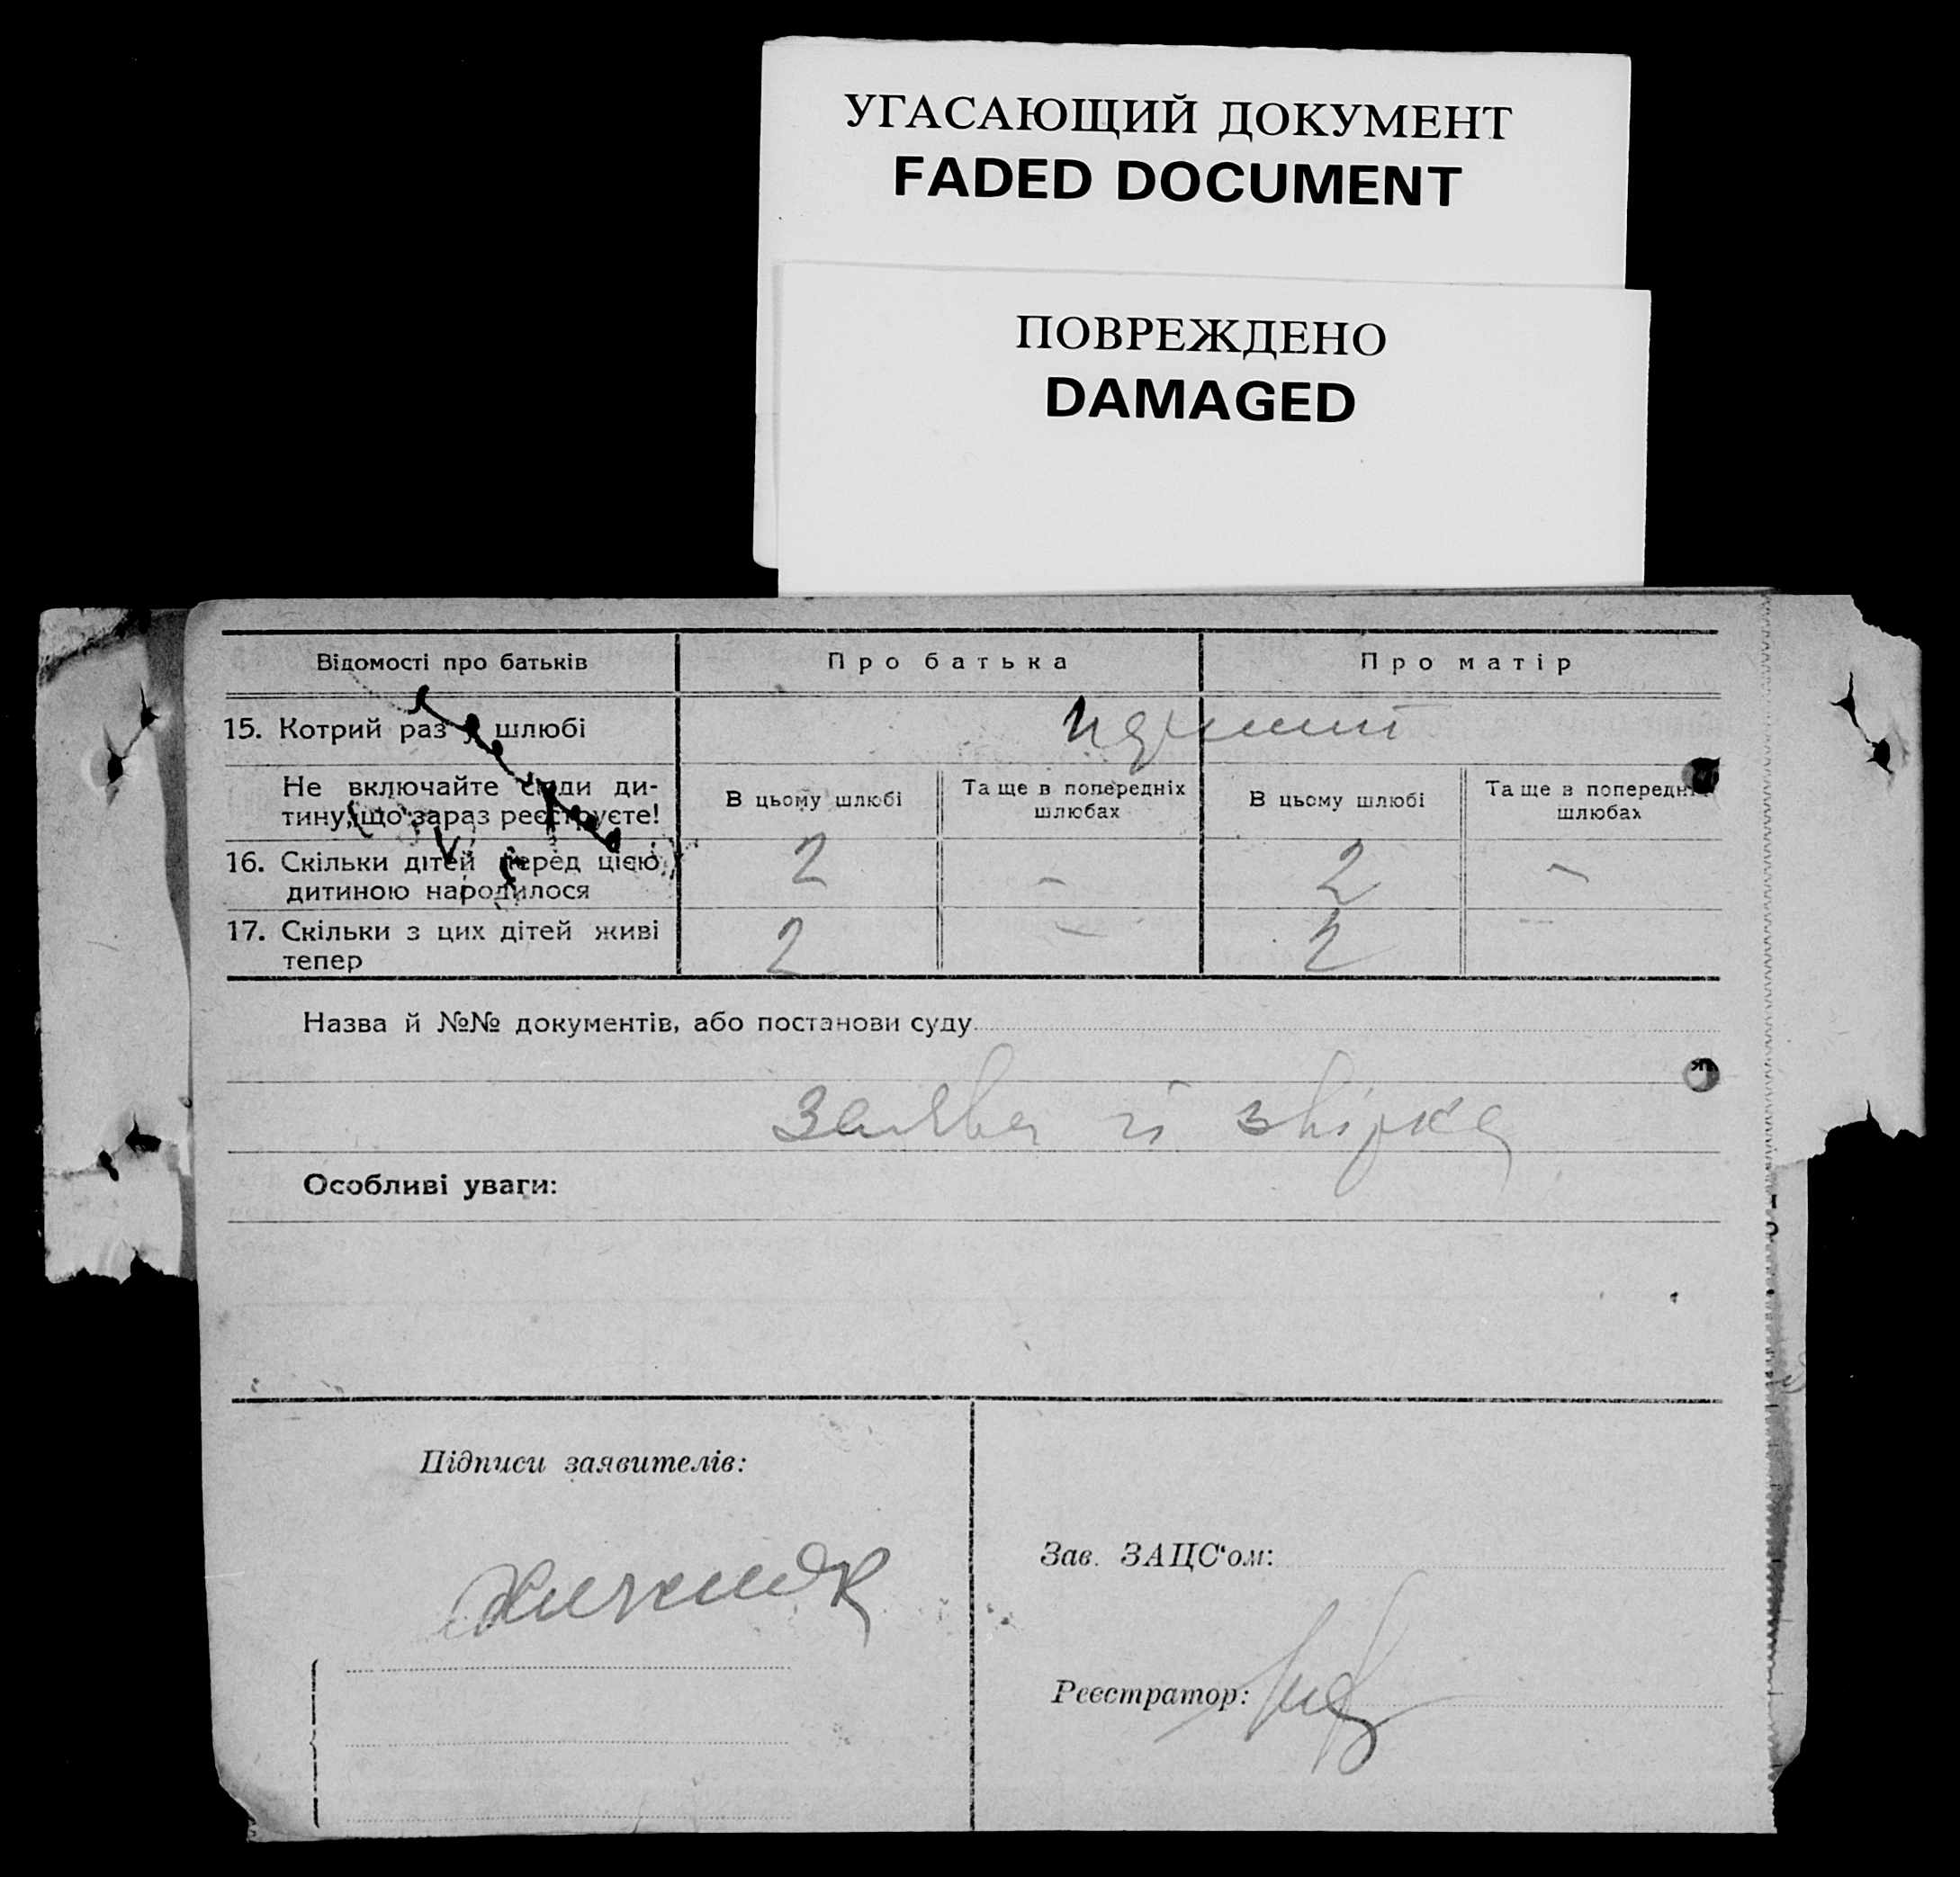 УГАСАЮЩИЙ ДОКУМЕНТ
FADED DOCUMENT
ПОВРЕЖДЕНО
DAMAGED
Відомості про батьків
Про батька
Про матір
15. Котрий раз у шлюбі
Не включайте сюди ди-
тину, що зараз реєструєте!
В цьому шлюбі
Та ще в попередніх
шлюбах
В цьому шлюбі
Та ще в попередніх
шлюбах
16. Скільки дітей перед цією
дитиною народилося
2 - 2 -
17. Скільки з цих дітей живі
тепер
2 - 2 -
Назва й №№ документів, або постанови суду
заява й звірка
Особливі уваги:
Підписи заявителів:
Зав. ЗАЦС‘ом:
Реєстратор: